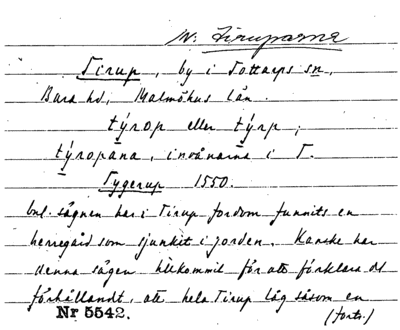 M: Tiruparna
Tirup, by i Tottarps sn,
Bara hd, Malmöhus län.
týrop eller týrp;
týropána, invånarna i T.
Tygerup 1550.
Enl. sägnen har i Tirup fordom funnits en
herregård som sjunkit i jorden. Kanske har
denna sägen tillkommit för att förklara det
förhållandet, att hela Tirup låg såsom en
Nr 5542. (forts.)